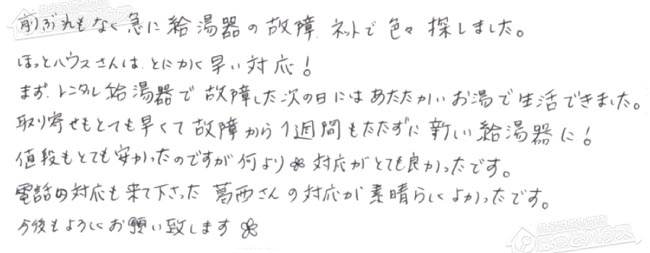 前ぶれもなく急に給湯器の故障、ネットで色々探しました。
ほっとハウスさんは、とにかく早い対応！
まず、レンタル給湯器で故障した次の日にはあたたかいお湯で生活できました。
取り寄せもとても早くて故障から1週間もたたずに新しい給湯器に！
値段もとても安かったのですが何より対応がとても良かったです。
電話の対応も来て下さった葛西さんの対応が素晴らしくよかったです。
今後もよろしくお願い致します
ほっとハウス